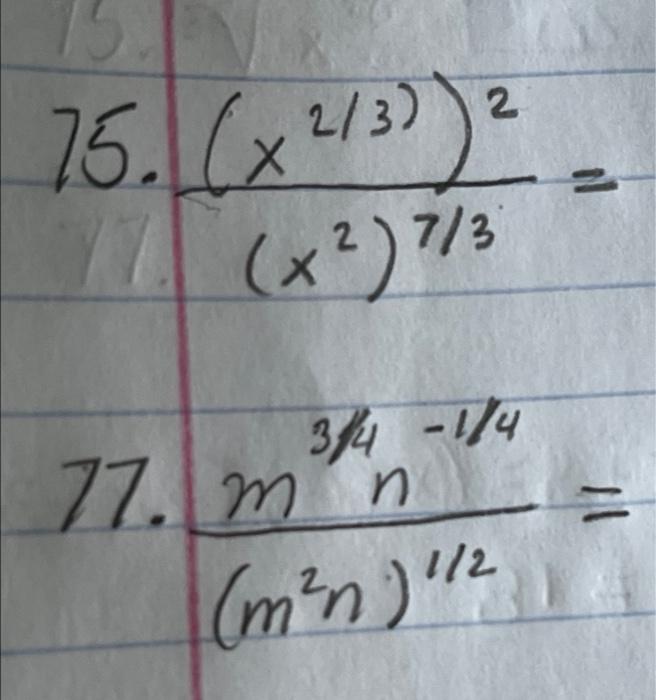 75. (x^2/3))^2 / (x^2)^7/3 =
77. m^3/4 n^-1/4 / (m^2n)^1/2 =